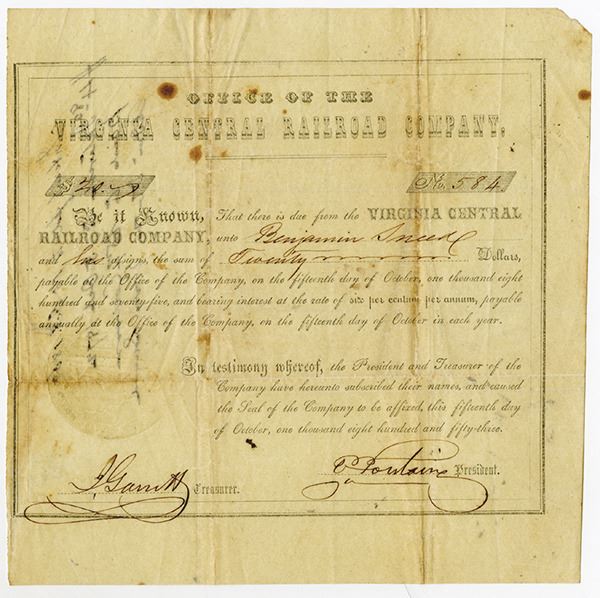 OFFICE OF THE
VIRGINIA CENTRAL RAILROAD COMPANY,
$20. No. 584
Be it Known, That there is due from the VIRGINIA CENTRAL
RAILROAD COMPANY, unto Benjamin Sneed
and his assigns, the sum of Twenty Dollars,
payable at the Office of the Company, on the fifteenth day of October, one thousand eight
hundred and seventy-five, and bearing interest at the rate of six per centum per annum, payable
annually at the Office of the Company, on the fifteenth day of October in each year.
In testimony whereof, the President and Treasurer of the
Company have hereunto subscribed their names, and caused
the Seal of the Company to be affixed, this fifteenth day
of October, one thousand eight hundred and fifty-three.
J. Garrett Treasurer.
E. Fontaine President.